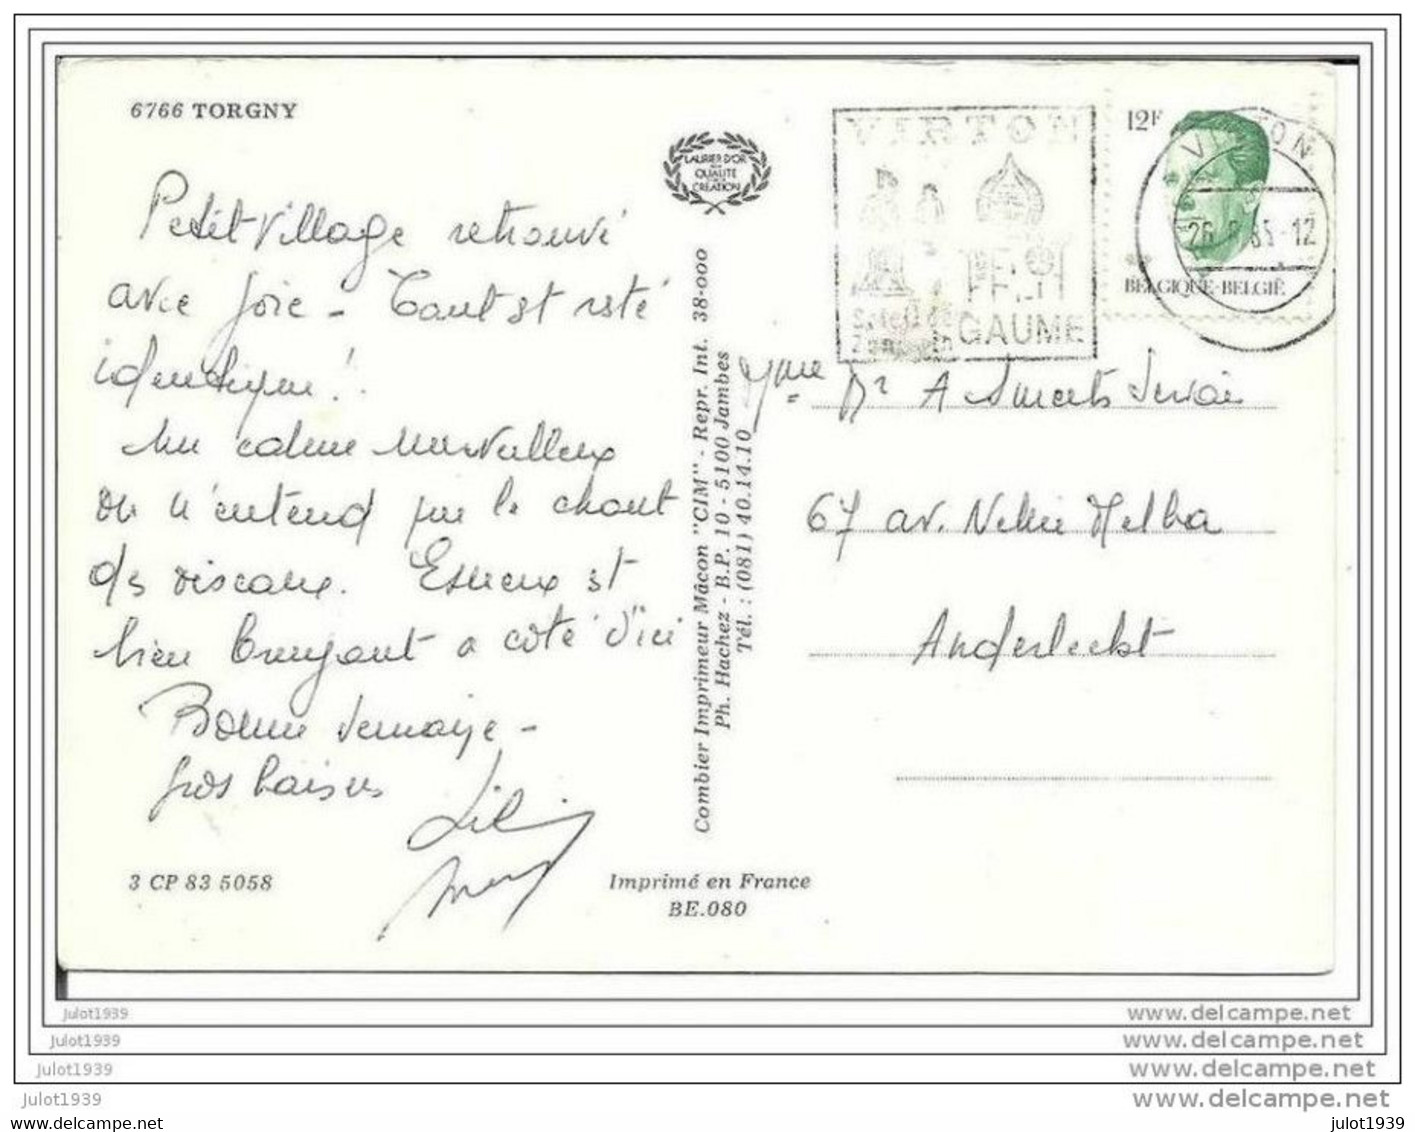 6766 TORGNY
Petit village retrouvé
avec joie - Tout est resté
identique !
Un calme merveilleux
on n'entend que le chant
des oiseaux. Essieux est
bien bruyant a côté d'ici
Bonne semaine -
gros baisers
Lili
3 CP 83 5058
LAURIER D'OR
DE LA
QUALITÉ
CREATION
Combier Imprimeur Mâcon "CIM" - Repr. Int. 38-000
Ph. Hachez - B.P. 10 - 5100 Jambes
Tél. : (081) 40.14.10
Imprimé en France
BE.080
VIRTON
GAUME
12F
VIRTON
BELGIQUE-BELGIË
Mme Dr A Smeets
67 av. Nellie Melba
Anderlecht
julot1939
www.delcampe.net
julot1939
www.delcampe.net
julot1939
www.delcampe.net
julot1939
www.delcampe.net
www.delcampe.net
julot1939